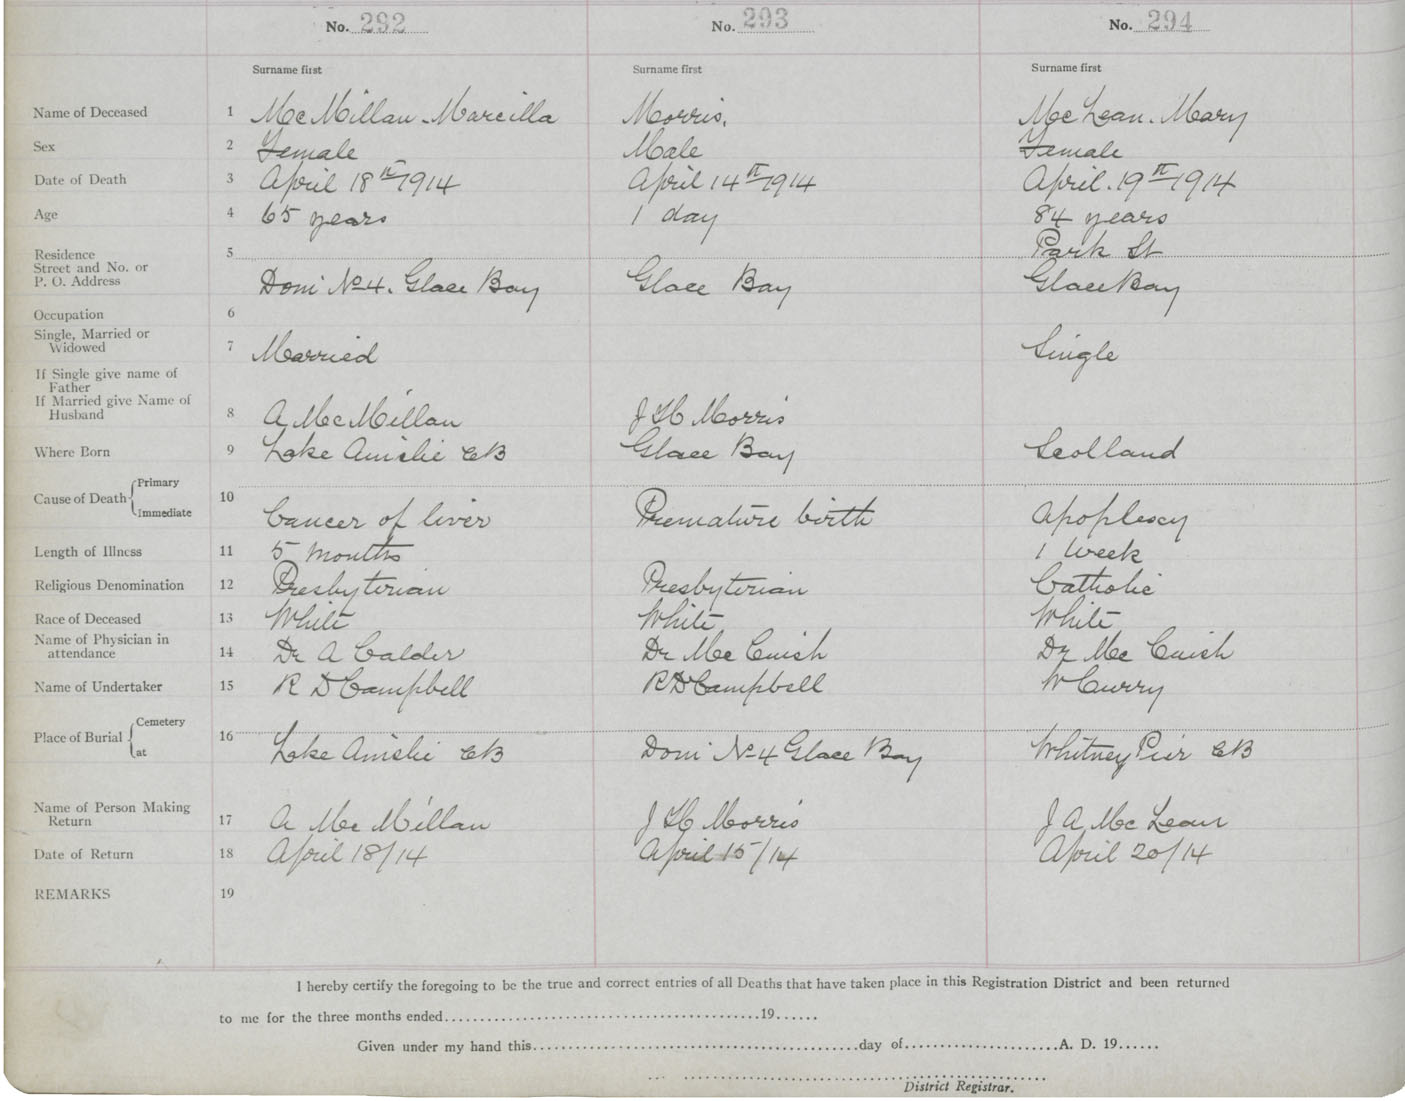 No. 292 No. 293 No. 294
Surname first Surname first Surname first
Name of Deceased 1 McMillan - Marcilla Morris, McLean. Mary
Sex 2 Female Male Female
Date of Death 3 April 18th 1914 April 14th 1914 April. 19th 1914
Age 4 65 years 1 day 84 years
Residence 5 Park St
Street and No. or
P. O. Address Dom No 4. Glace Bay Glace Bay Glace Bay
Occupation 6
Single, Married or
Widowed 7 Married Single
If Single give name of
Father
If Married give Name of
Husband 8 A McMillan J H Morris
Where Born 9 Lake Ainslie CB Glace Bay Scotland
Primary
Cause of Death 10
Immediate Cancer of liver Premature birth Apoplexy
Length of Illness 11 5 months 1 Week
Religious Denomination 12 Presbyterian Presbyterian Catholic
Race of Deceased 13 White White White
Name of Physician in
attendance 14 Dr A Calder Dr McCuish Dr McCuish
Name of Undertaker 15 R D Campbell R D Campbell W Curry
Cemetery
Place of Burial 16
at Lake Ainslie CB Dom No 4 Glace Bay Whitney Pier CB
Name of Person Making
Return 17 A McMillan J H Morris J A McLean
Date of Return 18 April 18/14 April 15/14 April 20/14
REMARKS 19
I hereby certify the foregoing to be the true and correct entries of all Deaths that have taken place in this Registration District and been returned
to me for the three months ended..........19......
Given under my hand this..........day of..........A. D. 19......
District Registrar.